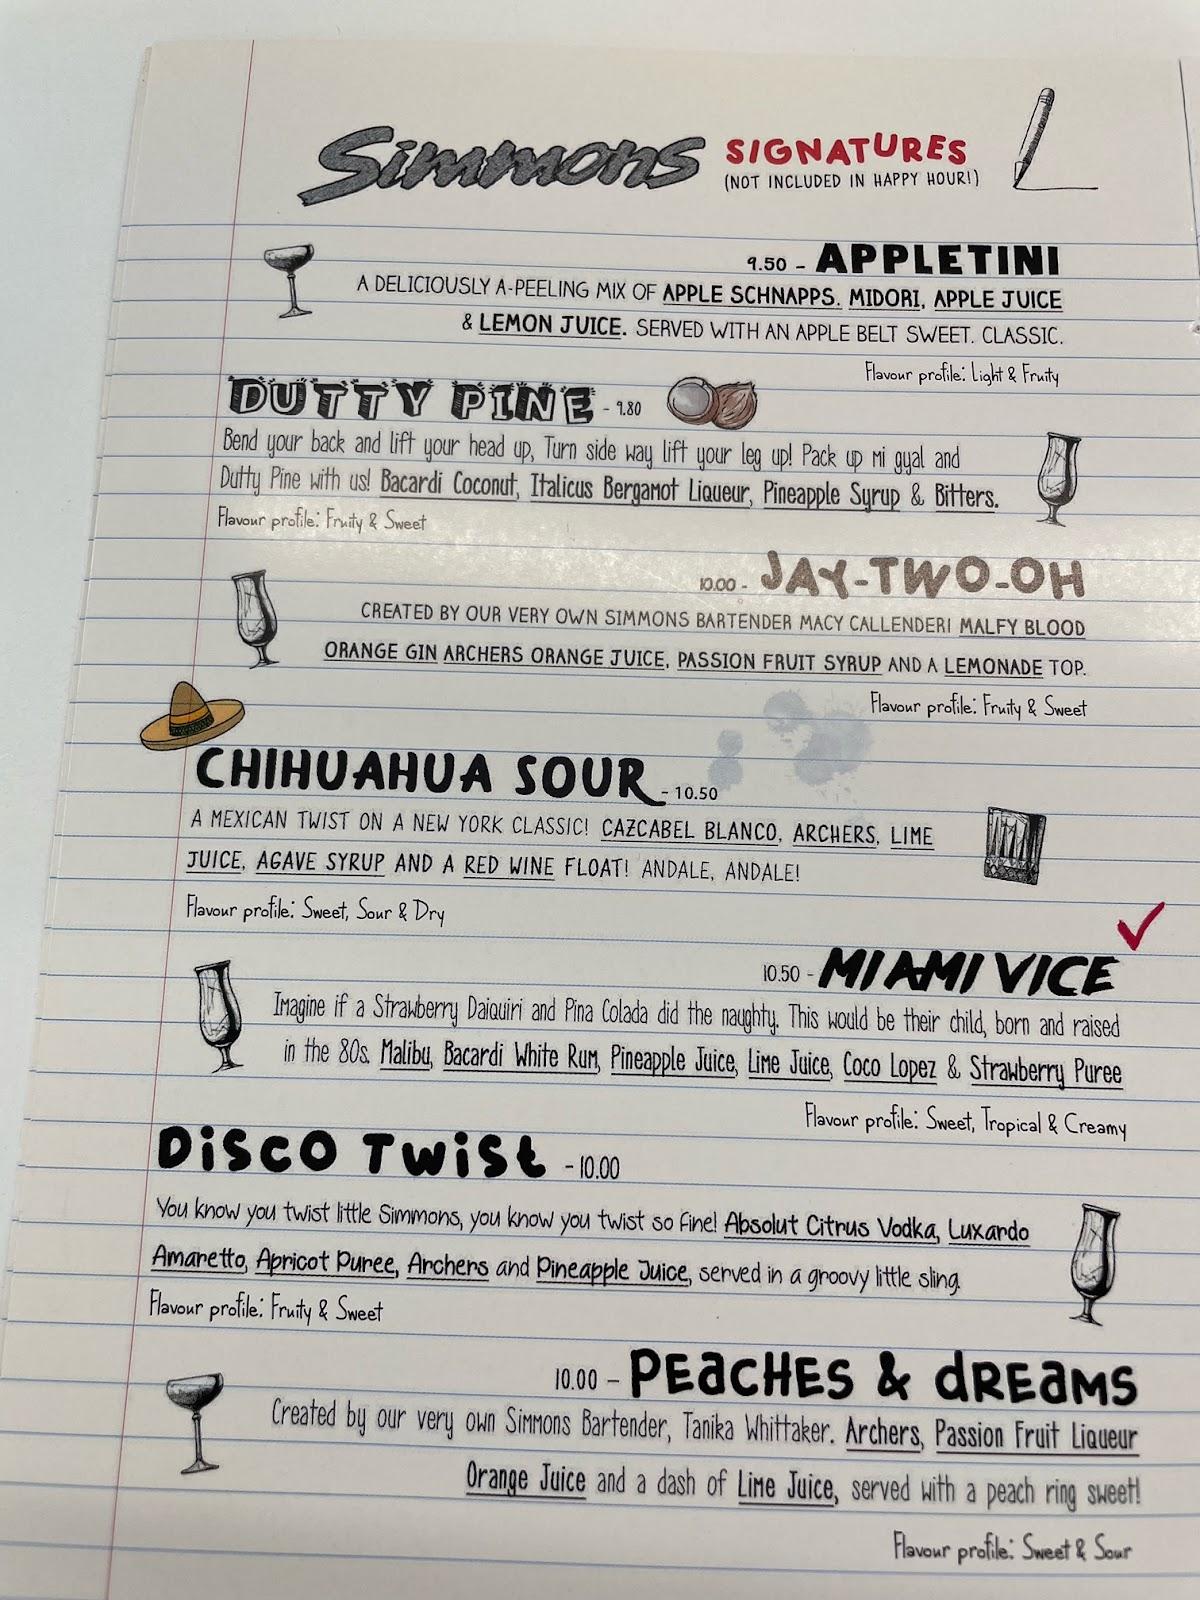 Simmons SIGNATURES
(NOT INCLUDED IN HAPPY HOUR!)
9.50 - APPLETINI
A DELICIOUSLY A-PEELING MIX OF APPLE SCHNAPPS, MIDORI, APPLE JUICE
& LEMON JUICE. SERVED WITH AN APPLE BELT SWEET. CLASSIC.
Flavour profile: Light & Fruity
DUTTY PINE - 9.80
Bend your back and lift your head up, Turn side way lift your leg up! Pack up mi gyal and
Dutty Pine with us! Bacardi Coconut, Italicus Bergamot Liqueur, Pineapple Syrup & Bitters.
Flavour profile: Fruity & Sweet
10.00 - JAY-TWO-OH
CREATED BY OUR VERY OWN SIMMONS BARTENDER MACY CALLENDER! MALFY BLOOD
ORANGE GIN ARCHERS ORANGE JUICE, PASSION FRUIT SYRUP AND A LEMONADE TOP.
Flavour profile: Fruity & Sweet
CHIHUAHUA SOUR - 10.50
A MEXICAN TWIST ON A NEW YORK CLASSIC! CAZCABEL BLANCO, ARCHERS, LIME
JUICE, AGAVE SYRUP AND A RED WINE FLOAT! ANDALE, ANDALE!
Flavour profile: Sweet, Sour & Dry
10.50 - MIAMI VICE
Imagine if a Strawberry Daiquiri and Pina Colada did the naughty. This would be their child, born and raised
in the 80s. Malibu, Bacardi White Rum, Pineapple Juice, Lime Juice, Coco Lopez & Strawberry Puree
Flavour profile: Sweet, Tropical & Creamy
DISCO TWIST - 10.00
You know you twist little Simmons, you know you twist so fine! Absolut Citrus Vodka, Luxardo
Amaretto, Apricot Puree, Archers and Pineapple Juice, served in a groovy little sling.
Flavour profile: Fruity & Sweet
10.00 - PEACHES & DREAMS
Created by our very own Simmons Bartender, Tanika Whittaker. Archers, Passion Fruit Liqueur
Orange Juice and a dash of Lime Juice, served with a peach ring sweet!
Flavour profile: Sweet & Sour